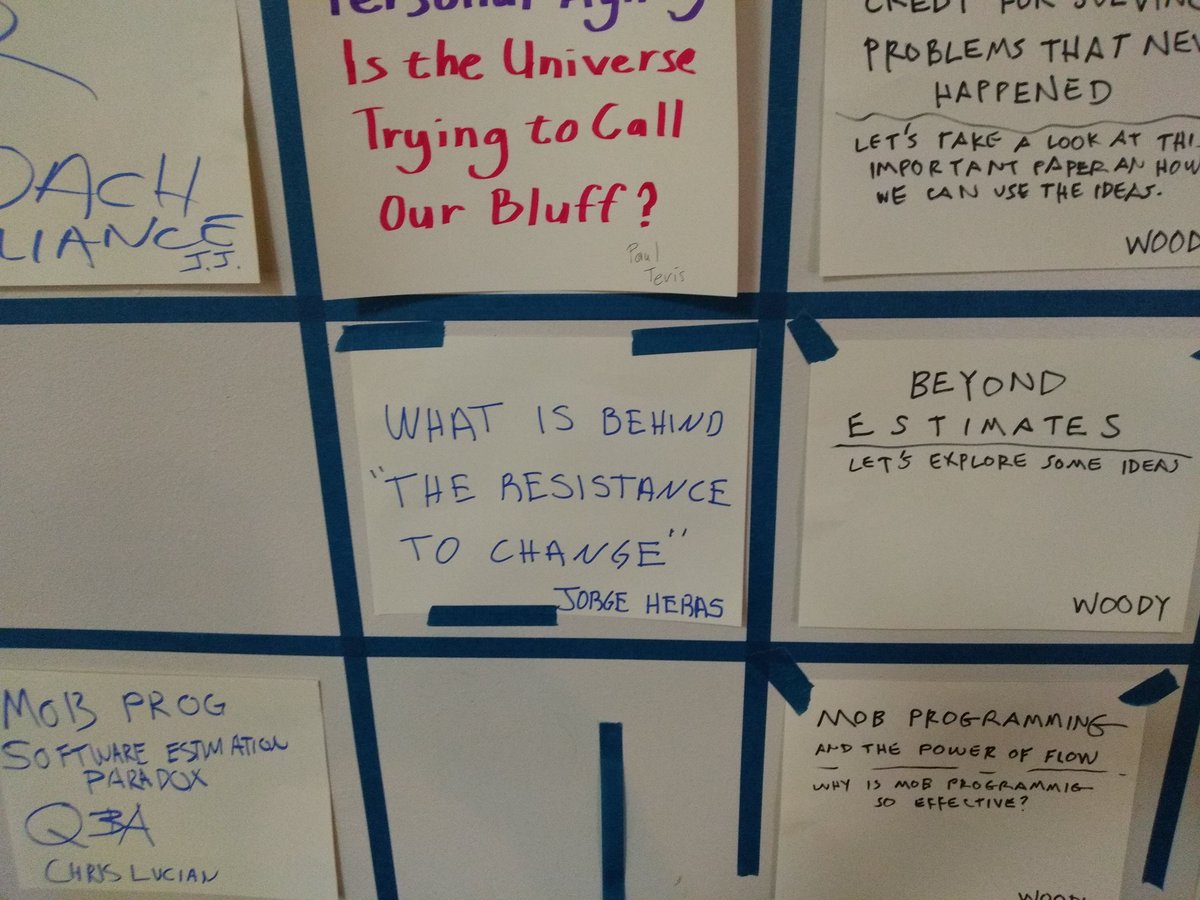 OACH
LIANCE
J.J.
Personal Agility
Is the Universe
Trying to Call
Our Bluff?
Paul
Tevis
CREDIT FOR SOLVING
PROBLEMS THAT NEV
HAPPENED
LET'S TAKE A LOOK AT THIS
IMPORTANT PAPER AN HOW
WE CAN USE THE IDEAS.
WOOD
WHAT IS BEHIND
"THE RESISTANCE
TO CHANGE"
JORGE HERAS
BEYOND
ESTIMATES
LET'S EXPLORE SOME IDEAS
WOODY
MOB PROG
SOFTWARE ESTIMATION
PARADOX
Q&A
CHRIS LUCIAN
MOB PROGRAMMING
AND THE POWER OF FLOW
WHY IS MOB PROGRAMMIG
SO EFFECTIVE?
WOODY